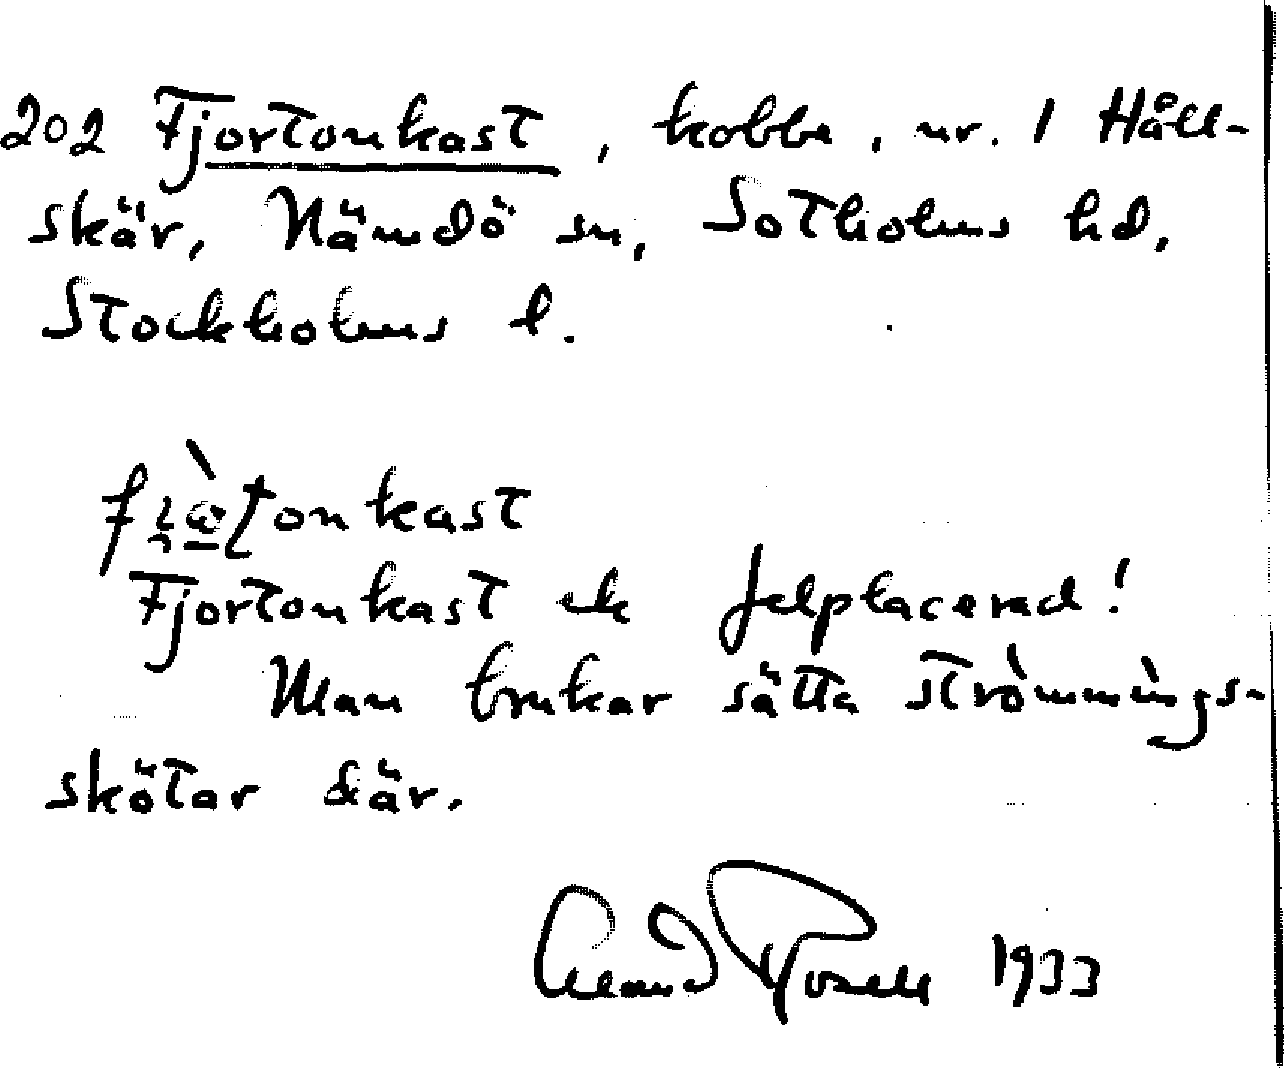 202 Fjortonkast, kobbe, nr. 1 Håll-
skär, Nämdö sn, Sotholms hd,
Stockholms l.
Fjortonkast ek felplacerad!
Man brukar sätta strömmings-
skötar där.
1933